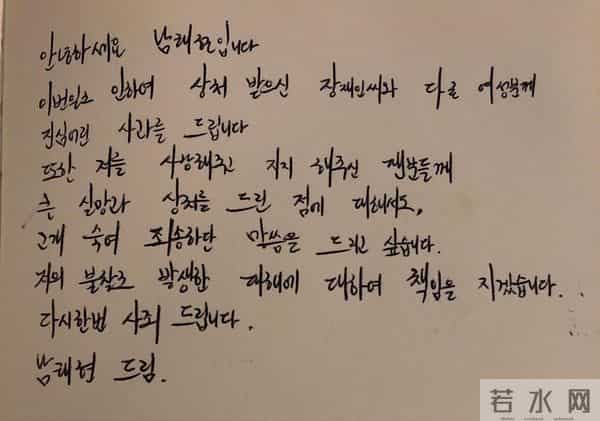 안녕하세요 남태현입니다
이번일로 인하여 상처 받으신 장재인씨와 다른 여성분께
진심어린 사과를 드립니다
또한 저를 사랑해주고 지지 해주신 팬분들께
큰 실망과 상처를 드린 점에 대해서도,
고개 숙여 죄송하단 말씀을 드리고 싶습니다.
저의 불찰로 발생한 피해에 대하여 책임을 지겠습니다.
다시한번 사죄 드립니다.
남태현 드림.
若水网